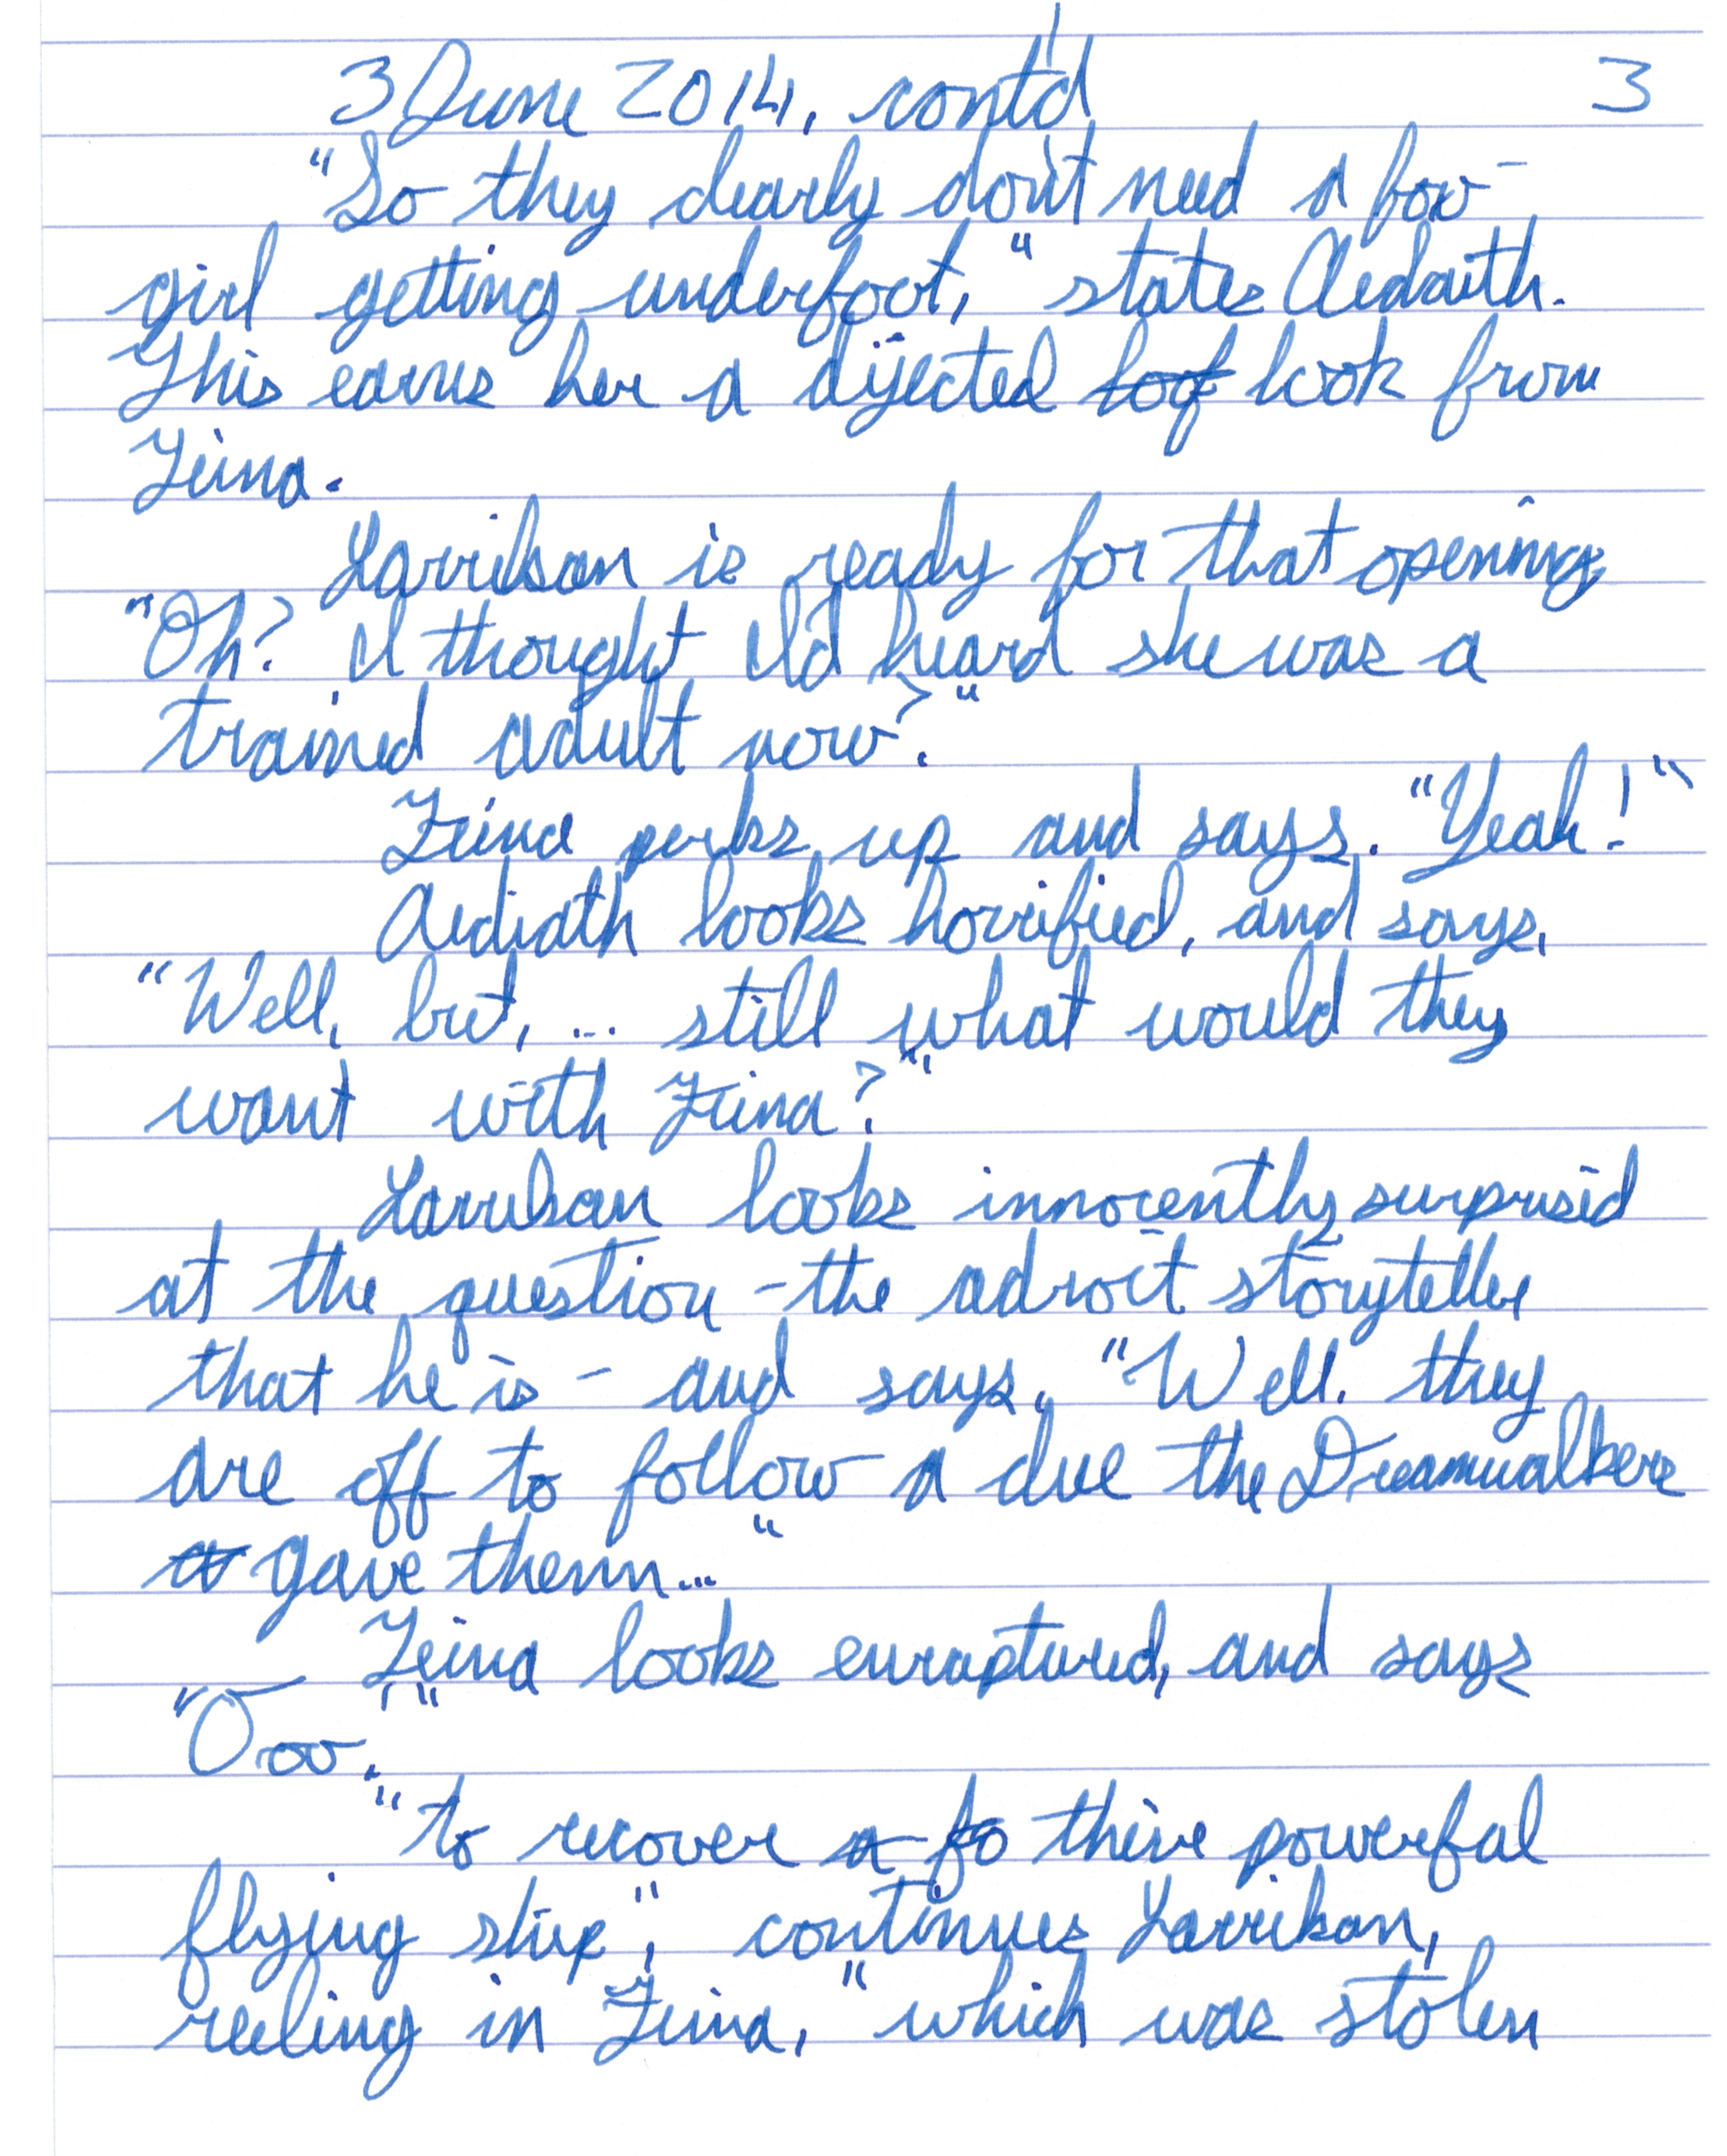 3 June 2014, cont'd 3
"So they clearly don't need a fox-
girl getting underfoot," states Aedaith.
This earns her a dijected look from
Zeina.
Larrikan is ready for that opening
"Oh? I thought I'd heard she was a
trained adult now?"
Zeina perks up and says. "Yeah!"
Aediath looks horrified, and says,
"Well, but, ... still what would they
want with Zeina?"
Larrikan looks innocently surprised
at the question - the adroit storyteller
that he is - and says, "Well. they
are off to follow a clue the Dreamwalkers
gave them..."
Zeina looks enraptured, and says
"Ooo!"
"to recover their powerful
flying ship", continues Larrikan,
reeling in Zeina, "which was stolen